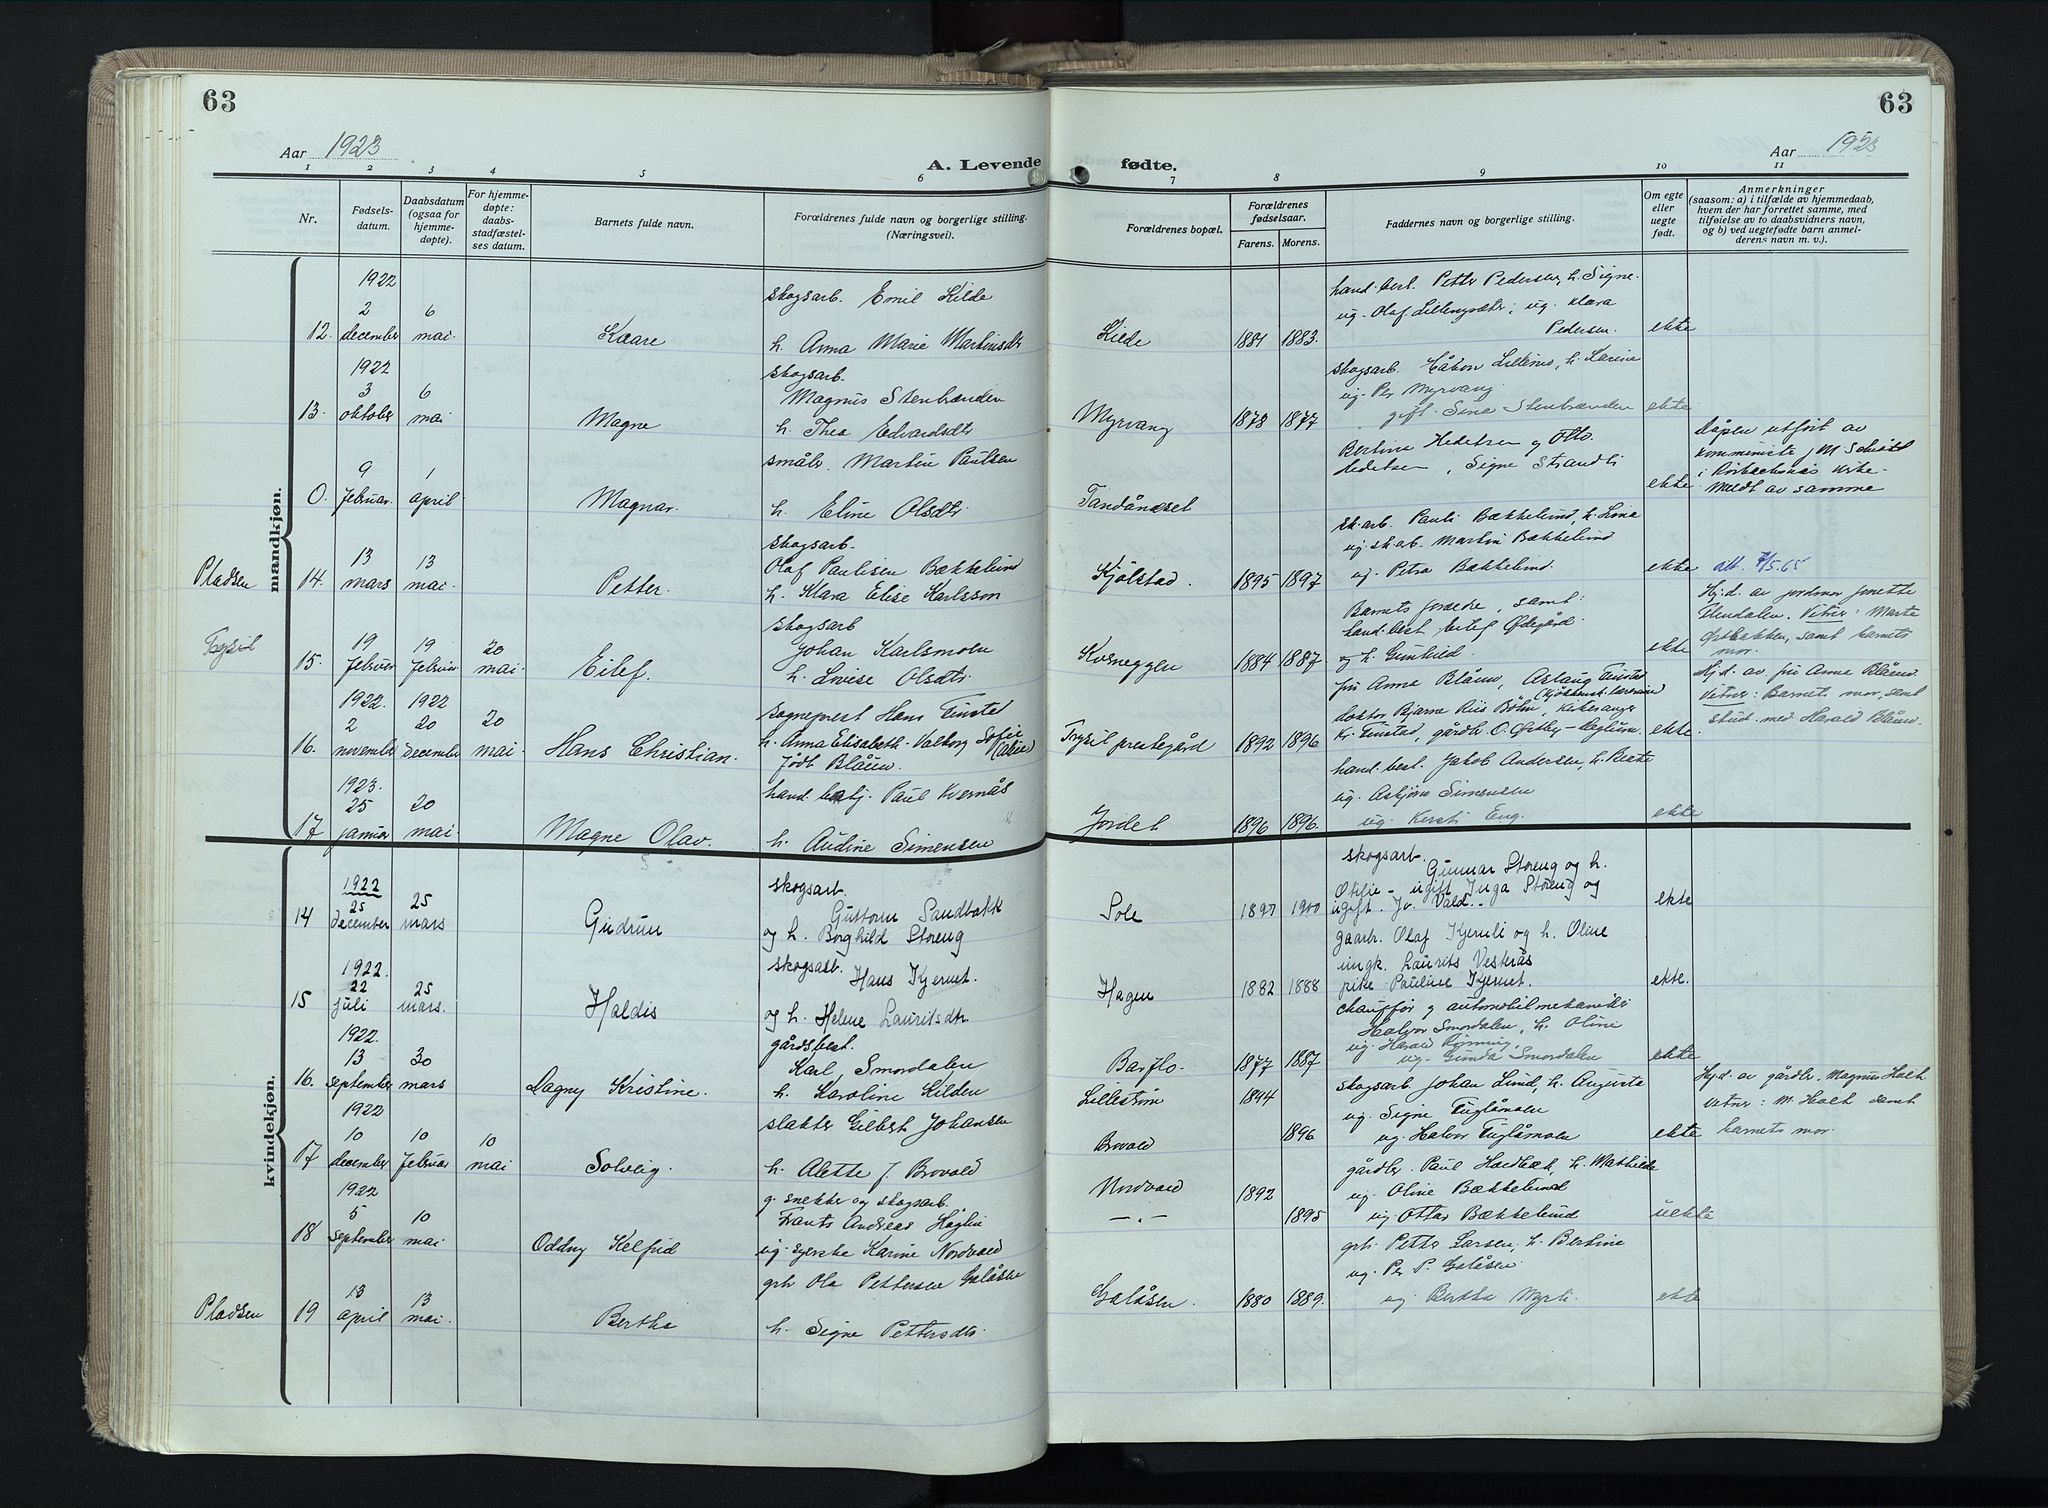 63
63
Aar 1923
A. Levende fødte.
Aar 1923
1 2 3 4 5 6 7 8 9 10 11
Nr.
Fødsels-
datum.
Daabsdatum
(ogsaa for
hjemme-
døpte).
For hjemme-
døpte:
daabs-
stadfæstel-
ses datum.
Barnets fulde navn.
Forældrenes fulde navn og borgerlige stilling.
(Næringsvei).
Forældrenes bopæl.
Forældrenes
fødselsaar.
Farens. Morens.
Faddernes navn og borgerlige stilling.
Om egte
eller
uegte
født.
Anmerkninger
(saasom: a) i tilfælde av hjemmedaab,
hvem der har forrettet samme, med
tilføielse av to daabsvidners navn,
og b) ved uegtefødte barn anmel-
derens navn m. v.).
mandkjøn.
1922
2 6
12. december mai.
Kaare
skogsarb. Emil Kilde
h. Anna Marie Martinsdtr
Kilde
1881 1883.
hand.best. Petter Pedersen, h. Signe.
ug. Olaf Lillengsæter; ug. Klara
Pedersen.
ekte
1922
3 6
13. oktober mai
Magne
skogsarb.
Magnus Stenbrænden
h. Thea Edvardsdtr
Myrvang
1878 1877
skogsarb. Håkon Lillemo, h. Karine
ug. Per Myrvang
gift. Sina Stenbrænden
ekte
9 1
0. februar. april.
Magnar.
småbr. Martin Paulsen
h. Eline Olsdtr
Tandåneset
Bertine Hedetsen og Otto
Hedetsen, Signe Strandli
ekte
Dåpen utført av
i
Meldt av samme
Pladsen
13 13
14. mars mai.
Petter.
skogsarb.
Olaf Paulsen Bækkelund
h. Klara Elise Karlsson
Kjølstad.
1895 1897
sk.arb. Pauli Bækkelund, h. Lina
ug. sk.ab. Martin Bækkelund
ug. Petra Bækkelund.
ekte
att. 7/5.65
Trysil
19 19 20
15. februar februar mai
Eilef.
skogsarb
Johan Karlsmoen
h. Lovise Olsdtr.
Kverneggen
1884 1887
Barnets foreldre, samt:
hand.best. Eilef Ødegård.
og h. Gunhild.
ekte
Hj.d. av jordmor Jonette
Flendalen. Vitner: Marte
Østbakken, samt barnets
mor.
1922. 1922
2 20 20
16. november december mai
Hans Christian.
sogneprest Hans Finstad
h. Anna Elisabeth-Valborg Sofie
født Blåun.
Trysil prestegård
1892 1896
fru Anna Blåun, Aslaug Finstad
doktor Bjarne Riis Bøhn, kirkesanger
Kr. Finstad, gårdbr. O. Østby-Deglum.
ekte.
Hj.d. av fru Anna Blåun.
Vitner: Barnets mor, samt
stud. med Harald Blåun.
1923.
25 20
17 januar mai.
Magne Olav.
hand.bestj. Paul Kvernås
h. Audine Simensen
Jordet
1896 1896.
hand.best. Jakob Andersen, h. Beate
ug. Asbjørn Simensen
ug. Kersti Eng.
ekte
kvindekjøn.
1922
25 25
14 december mars
Gudrun
skogsarb.
Guttorm Sandbakk
og h. Borghild Storeng
Sole
1897 1900
skogsarb.
Gunnar Storeng og h.
Otilie - ugift Inga Storeng og
ugift. Jo. Vold..
ekte
1922.
22 25
15 juli mars.
Haldis
skogsarb.
Hans Kjernet.
og h. Helene Lauritsdtr.
Hagen
1882 1888
gaarbr. Olaf Kjernli og h. Oline
ungk. Laurits Vesterås
pike Pauline Kjernet.
ekte.
1922.
13 30
16. september mars
Dagny Kristine.
gårdsbest.
Karl Smordalen
h. Karoline Kilden
Barflo.
1877 1887
chauffør og automobilmekaniker
Halvor Smordalen, h. Oline
ug. Harald Rønning,
ug. Gunda Smordalen
ekte
1922
10 10 10
17 december februar mai
Solveig.
slakter Gilbert Johansen
h. Alette J. Brovold
Lillestrøm
Brovold
1894
1896
skogsarb. Johan Lund, h. Augusta
ug. Signe Fuglåmoen
ug. Halvor Fuglåmoen
ekte
Hj.d. av gårdbr. Magnus Holt
Vitner: M. Holt samt
barnets mor.
1922
5 10
18 september mai
Oddny Kelfrid
g. snekker og skogsarb.
Frants Andreas Høglin
ug. syerske Karine Nordvold
Nordvold
—.—
1892
1895
gårdbr. Paul Hordbæk, h. Mathilde
ug. Oline Bækkelund
ug Ottar Bækkelund.
uekte
Pladsen
13 13
19 april mai.
Bertha
grb. Ola Pettersen Galåsen
h. Signe Pettersdtr.
Galåsen.
1880 1889.
grb. Petter Larsen, h. Bertine
ug. Per P. Galåsen.
ug Bertha Myrli.
ekte